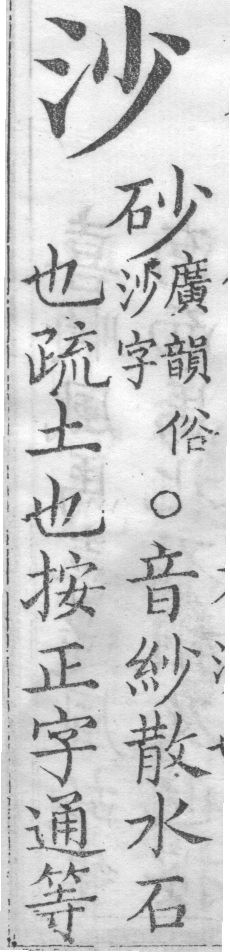 沙
砂廣韻俗
沙字○音紗散水石
也疏土也按正字通等